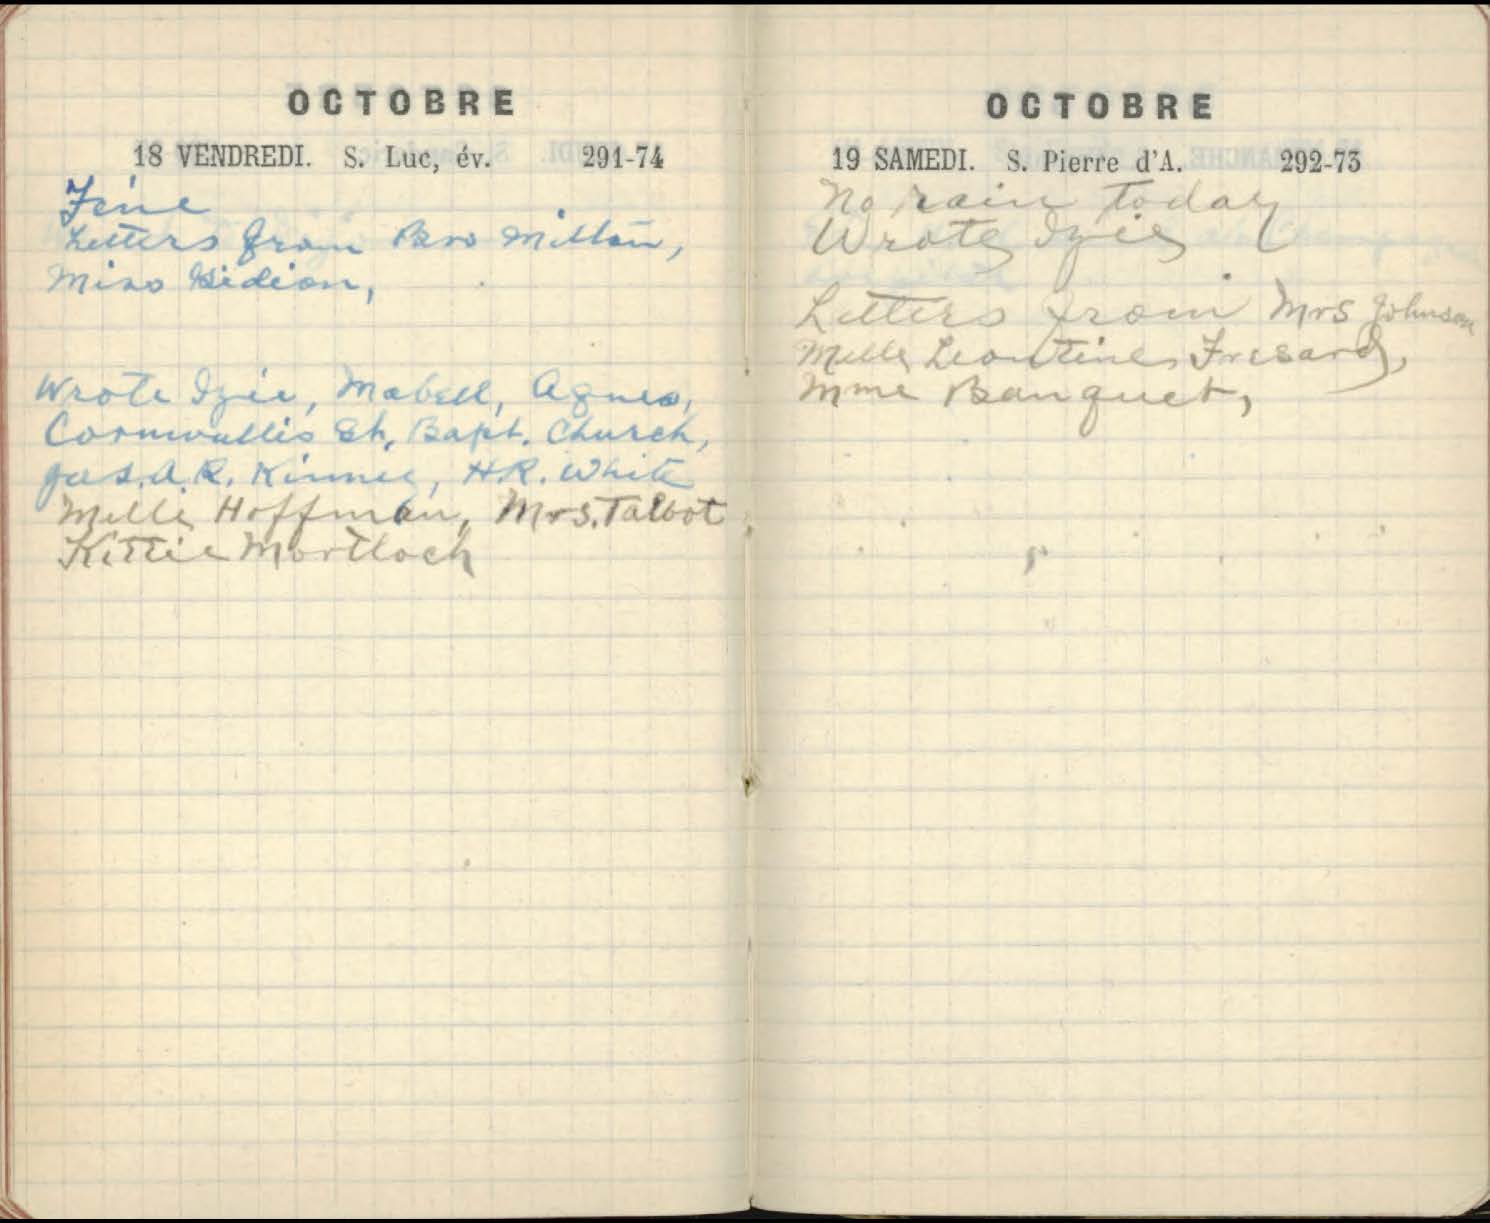 OCTOBRE
18 VENDREDI. S. Luc, év. 291-74
Fine
Letters from Bro Milton,
Miss Gideon,
Wrote Izie, Mabell, Agnes,
Cornwallis St. Bapt. Church,
Jas. A. R. Kinney, H.R. White
Melle Hoffman, Mrs. Talbot
Kittie Mortlock
OCTOBRE
19 SAMEDI. S. Pierre d'A. 292-73
No rain today
Wrote Izie
Letters from Mrs Johnson
Melle Leontine Fresard,
Mme Banquet,